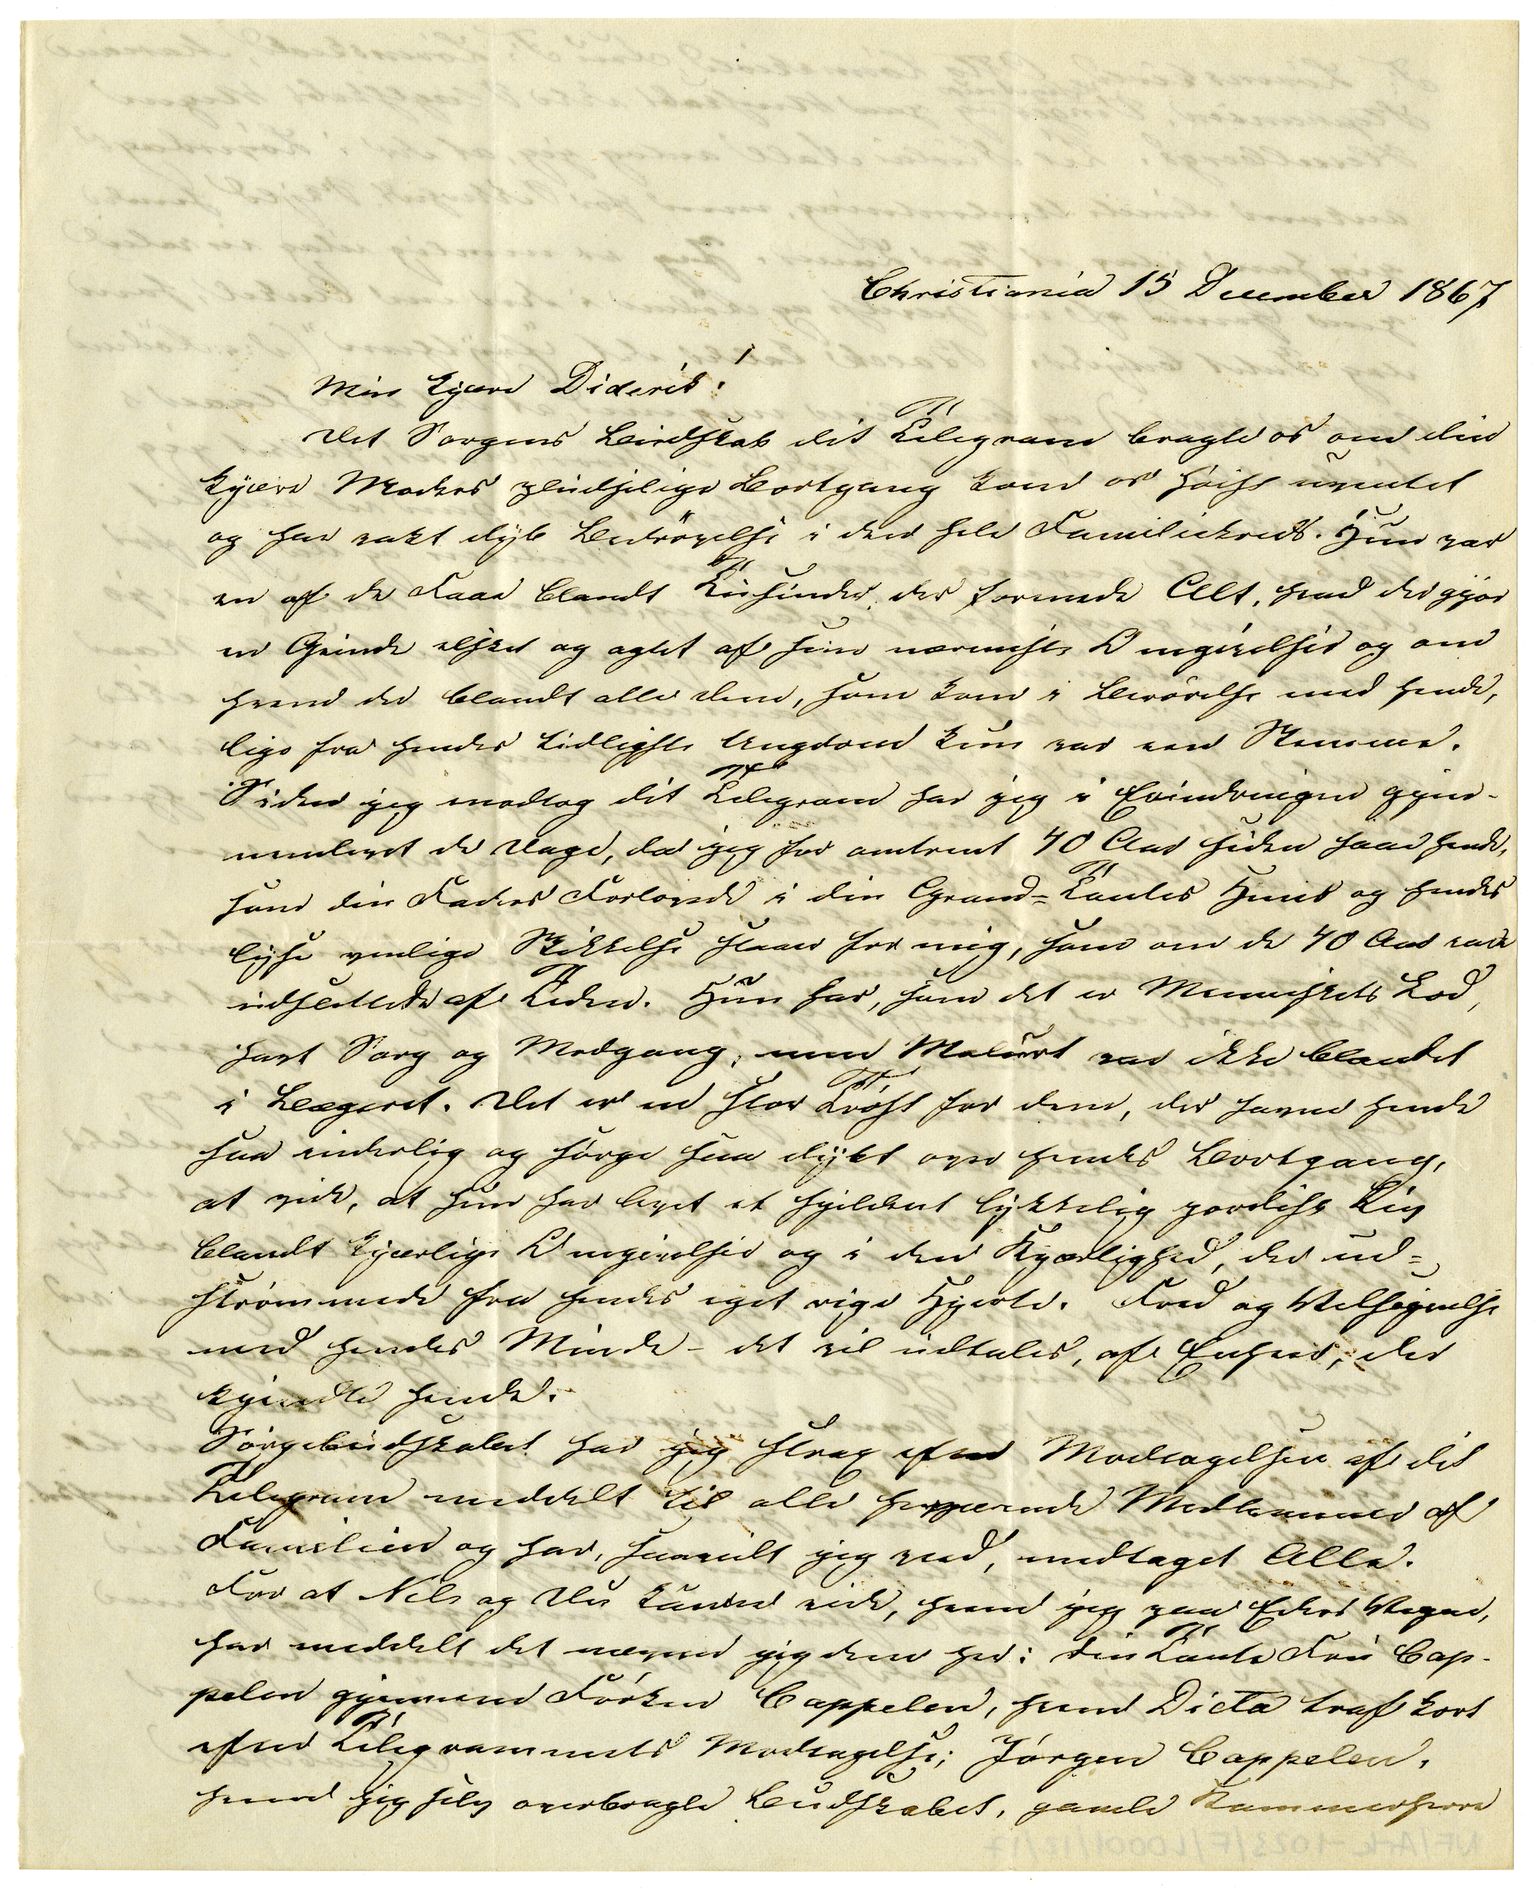 Christiania 15 December 1867
Min kjære Diderik!
Det Sorgens Budskab dit Telegram bragte os om din
kjære Moders pludselige Bortgang kom os høist uventet
og har vakt dyb Bedrøvelse i den hele Familiekreds. Hun var
en af de Faae blandt Tusinder, der formaaede Alt, hvad der gjør
en Qvinde elsket og agtet af sine nærmeste Omgivelser og om
hvem der blandt alle dem, som kom i Berørelse med hende,
lige fra hendes tidligste Ungdom kun var een Stemme.
Siden jeg modtog dit Telegram har jeg i Erindringen gjen-
nemlevet de Dage, da jeg for omtrent 40 Aar siden saae hende,
som din Faders Forlovede i din Grand-Tantes Huus og hendes
lyse venlige Skikkelse staaer for mig, som om de 40 Aar vare
udslettede af Tiden. Hun har, som det er Menneskets Lod,
havt Sorg og Modgang, men Malurt var ikke blandet
i Bægeret. Det er en stor Trøst for dem, der savne hende
saa inderlig og sørge saa dybt over hendes Bortgang,
at vide, at hun har levet et sjeldent lykkelig jordisk Liv
blandt kjærlige Omgivelser og i den Kjærlighed, der ud-
strømmede fra hendes eget rige Hjerte. Fred og Velsignelse
med hendes Minde - det vil udtales, af Enhver, der
kjendte hende.
Sørgebudskabet har jeg strax efter Modtagelsen af dit
Telegram meddelt til alle herværende Medlemmer af
Familien og har, saavidt jeg veed, medtaget Alle.
For at Nils og Du kunne vide, hvem jeg paa Eders Vegne,
har meddelt det nævner jeg dem her: din Tante Fru Cap-
pelen gjennem Frøken Cappelen, hvem Dicta traf kort
efter Telegrammets Modtagelse; Jørgen Cappelen,
hvem jeg selv overbragte Budskabet, gamle Kammerherre